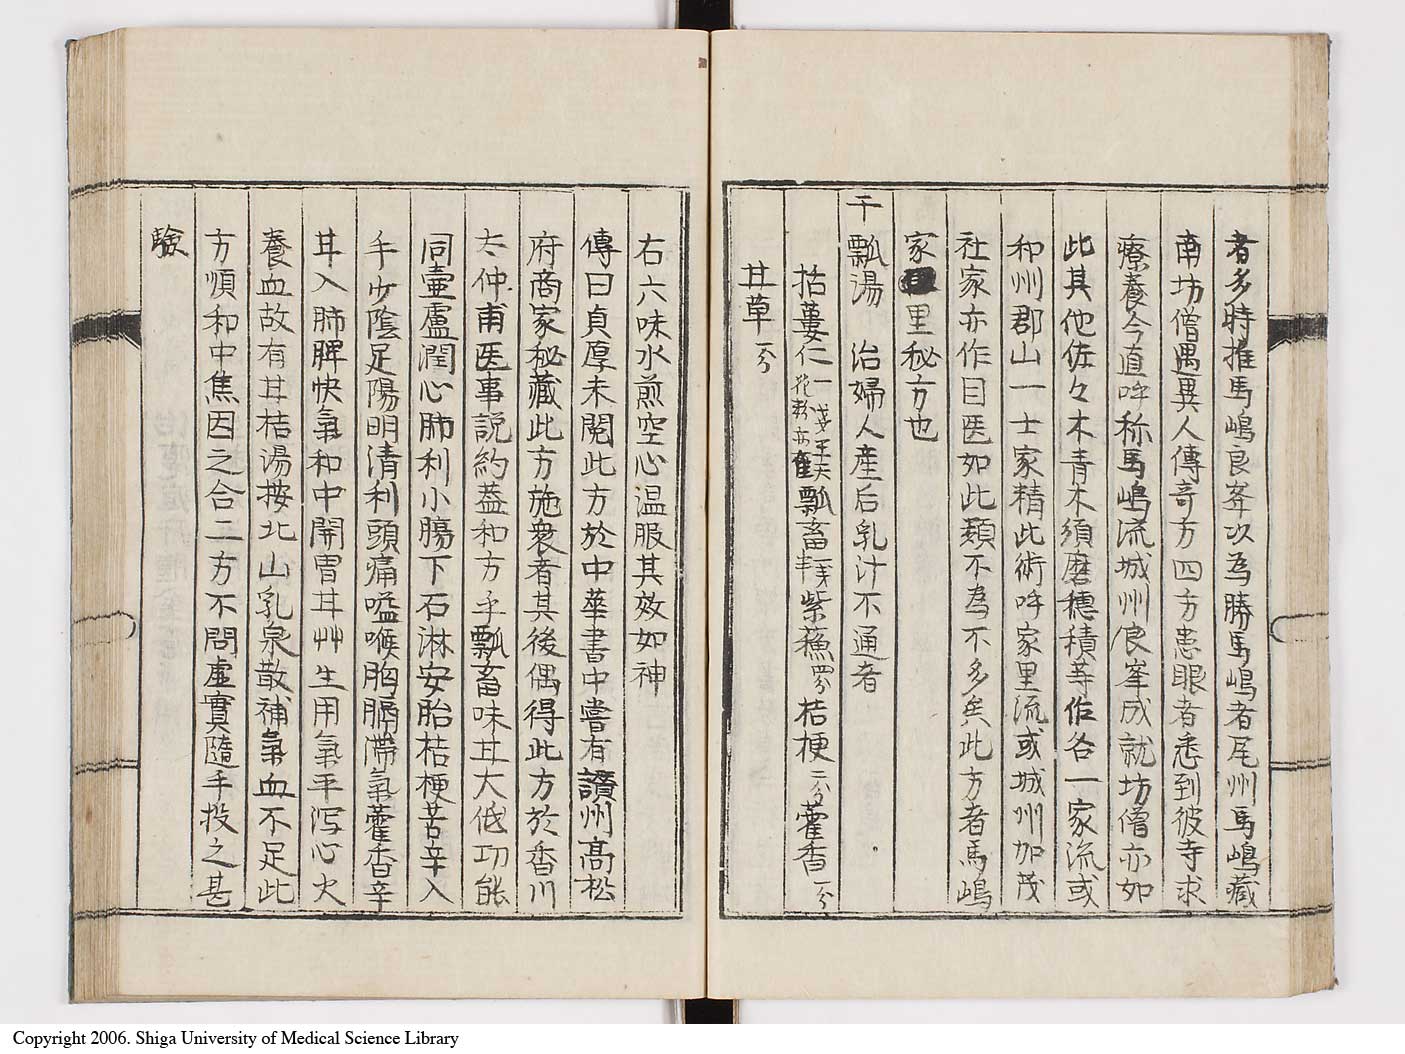 者多時推馬嶋良峯次為勝馬嶋者尾州馬嶋藏
南坊僧遇異人傳奇方四方患眼者悉到彼寺求
療養今直呼称馬嶋流城州良峯成就坊僧亦如
此其他佐々木青木須磨穂積等作各一家流或
和州郡山一士家精此術呼家里流或城州加茂
社家亦作目医如此類不為不多矣此方者馬嶋
家里秘方也
干瓢湯 治婦人産后乳汁不通者
括蔞仁一戔花粉亦佳瓢畜一戔半紫蘓四分桔梗二分藿香一分
甘草一分
右六味水煎空心温服其效如神
傳曰貞厚未閲此方於中華書中嘗有讃州高松
府商家秘藏此方施衆者其後偶得此方於香川
太仲甫医事説約蓋和方乎瓢畜味甘大低功能
同壷盧潤心肺利小腸下石淋安胎桔梗苦辛入
手少陰足陽明清利頭痛嗌喉胸膈滞氣藿香辛
甘入肺脾快氣和中開胃甘艸生用氣平瀉心火
養血故有甘桔湯按北山乳泉散補氣血不足此
方順和中焦因之合二方不問虚實隨手投之甚
驗
Copyright 2006. Shiga University of Medical Science Library